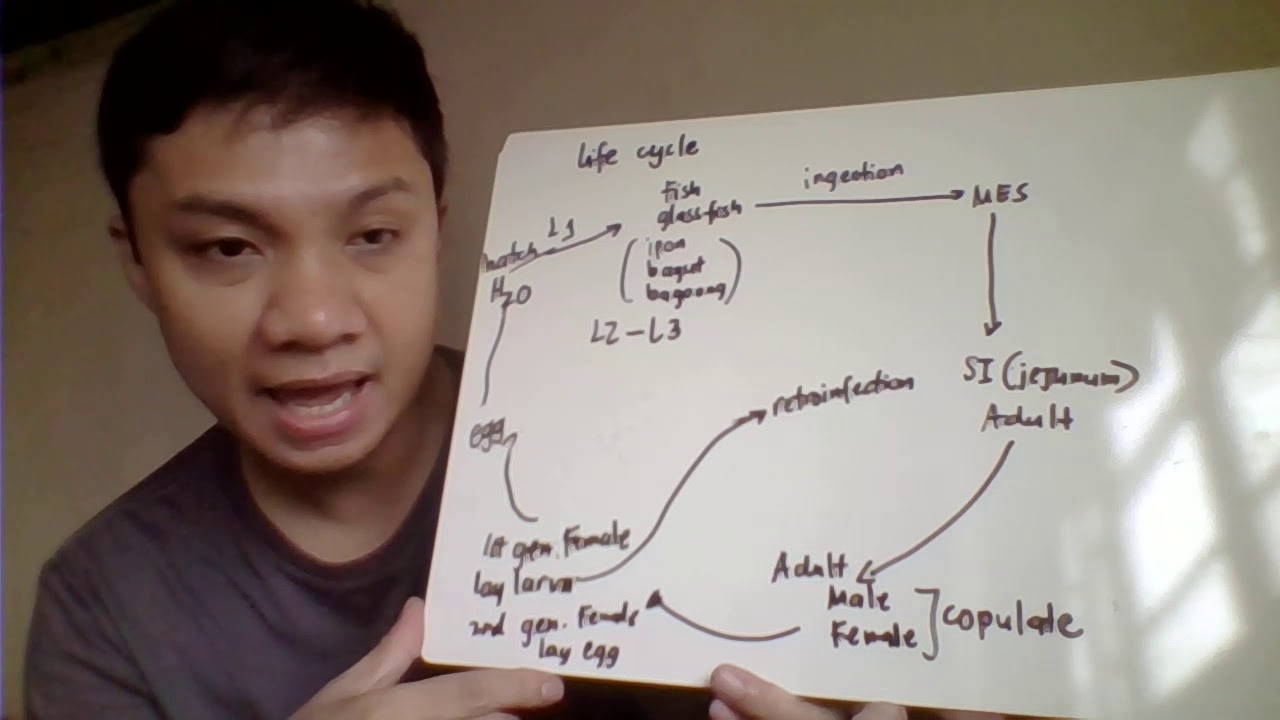 life cycle
hatch L1
H2O
Fish
glass-fish
(ipon
bagsit
bagoong)
L2-L3
ingestion
MES
SI (jejunum)
Adult
Adult
Male
Female ] copulate
retroinfection
egg
1st gen. Female
lay larva
2nd gen. Female
lay egg